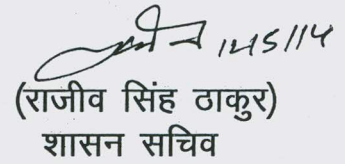 14/5/14
(राजीव सिंह ठाकुर)
शासन सचिव